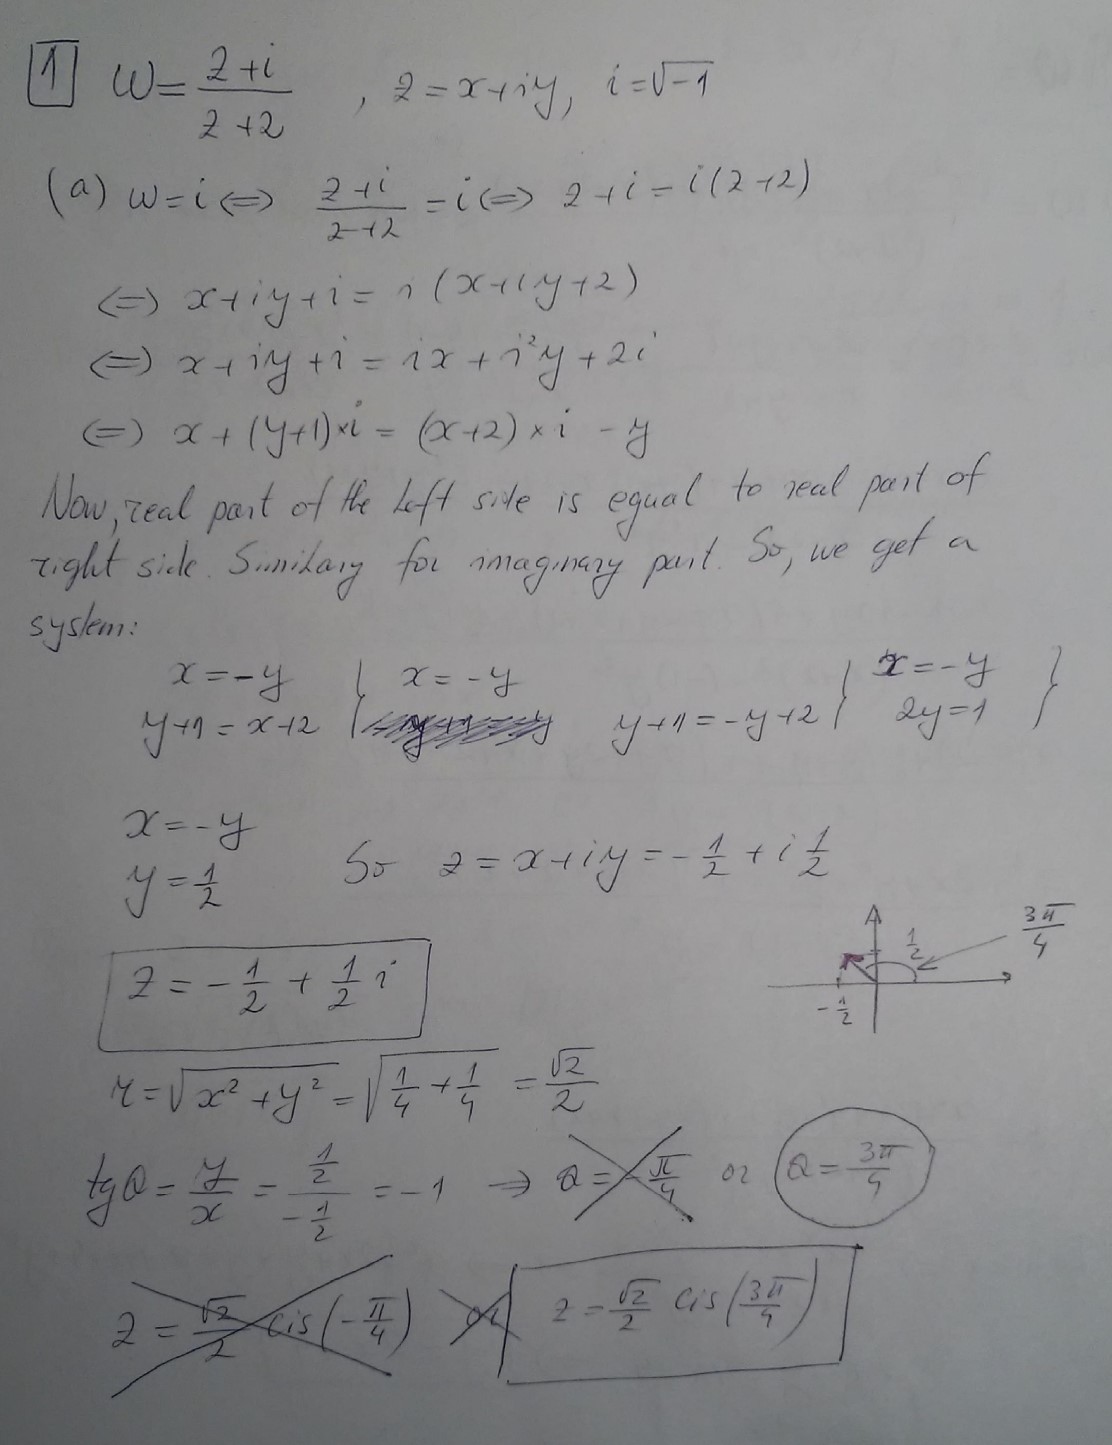 1 w = (z+i)/(z+2) , z = x+iy, i = √-1
(a) w = i ⇔ (z+i)/(z+2) = i ⇔ z+i = i(z+2)
⇔ x+iy+i = i(x+iy+2)
⇔ x+iy+i = ix+i²y+2i
⇔ x+(y+1)×i = (x+2)×i - y
Now, real part of the left side is equal to real part of
right side. Similary for imaginary part. So, we get a
system:
x = -y } x = -y } x = -y }
y+1 = x+2 y+1 = -y+2 2y = 1
x = -y
y = 1/2 So z = x+iy = -1/2 + i 1/2
z = -1/2 + 1/2 i
1/2 3π/4
-1/2
r = √(x²+y²) = √(1/4+1/4) = √2/2
tgθ = y/x = (1/2)/(-1/2) = -1 ⇒ θ = -π/4 or θ = 3π/4
z = √2/2 cis(-π/4) or z = √2/2 cis(3π/4)